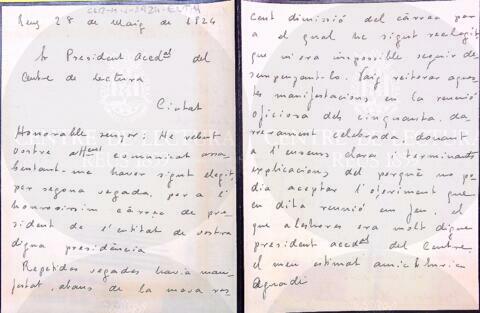 Reus 28 de Maig de 1924
Sr President accdal del
Centre de Lectura
Ciutat
Honorable senyor: He rebut
vostre attent comunicat assa-
bentant-me haver sigut elegit,
per segona vegada, per a l'
honrosissim càrrec de pre-
sident de l'entitat de vostra
digna presidència
Repetides vegades havia mani-
festat, abans de la meva res-
cent dimissió del càrrec per
a el qual he sigut reelegit
que m'era impossible seguir de-
sempenyant-lo. Vaig reiterar aques-
tes manifestacions en la reunió
oficiosa dels cinquanta, da-
rrerament celebrada, donant
a l'ensems clara i terminants
explicacions del perquè no po-
dia acceptar l'oferiment que
en dita reunió em feu, el
que aleshores era molt digne
president accdal del Centre,
el meu estimat amic Enric
Aguadé